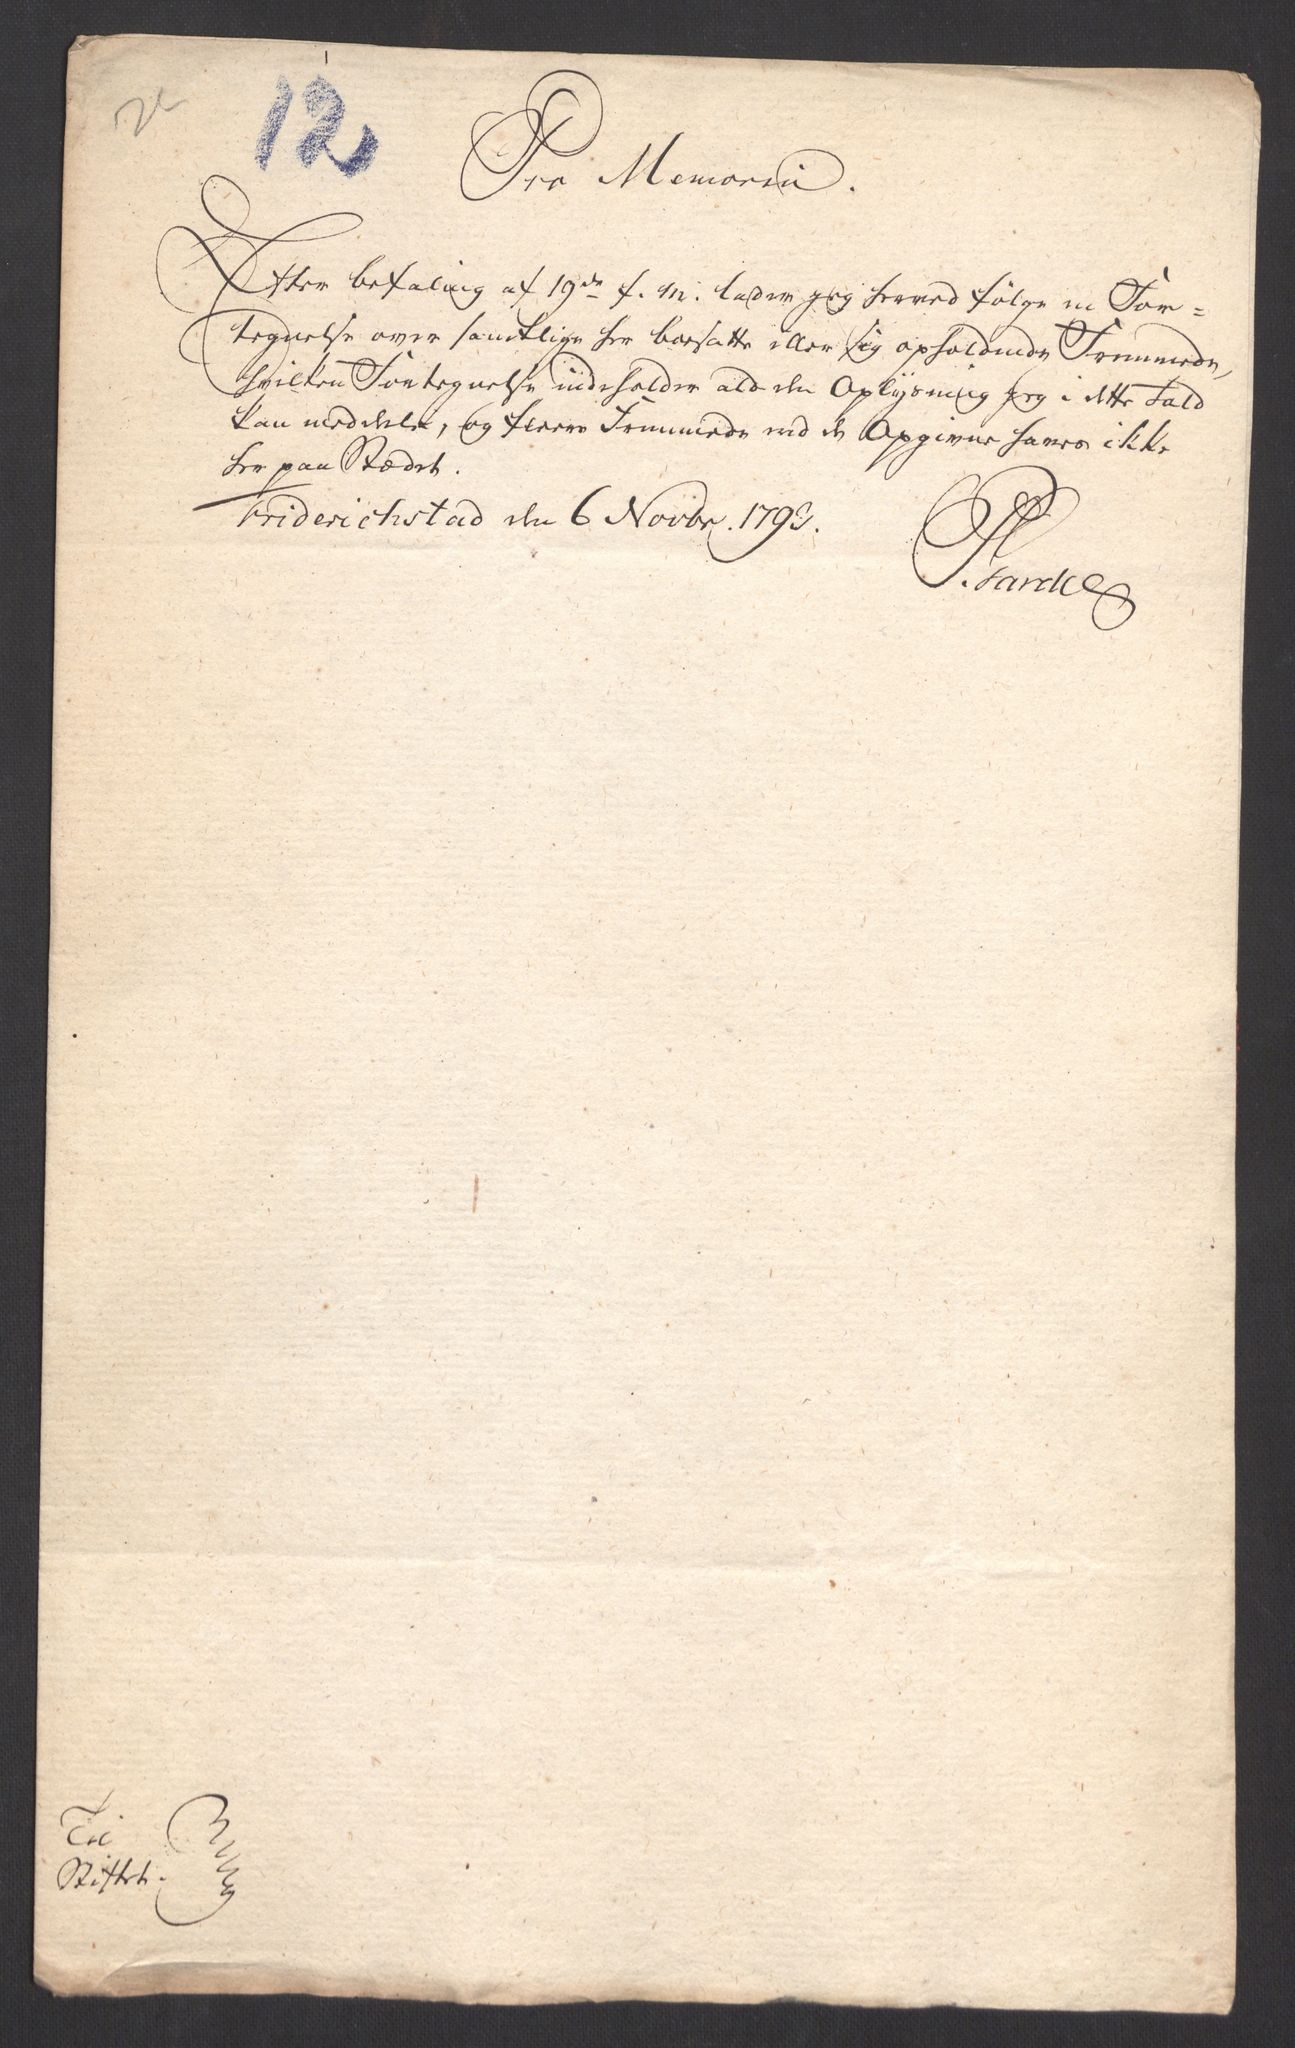 12
Pro Memoria.
Efter befaling af 19de f. M. lader jeg herved følge en For=
tegnelse over samtlige her boesatte eller sig opholdende Fremmede,
hvilken Fortegnelse indeholder ald den Oplysning jeg i dette Fald
kan meddele, og fleere Fremmede end de Opgivne haves ikke
her paa Stædet.
Friderichstad den 6 Novbr. 1793.
Til
Stiftet.